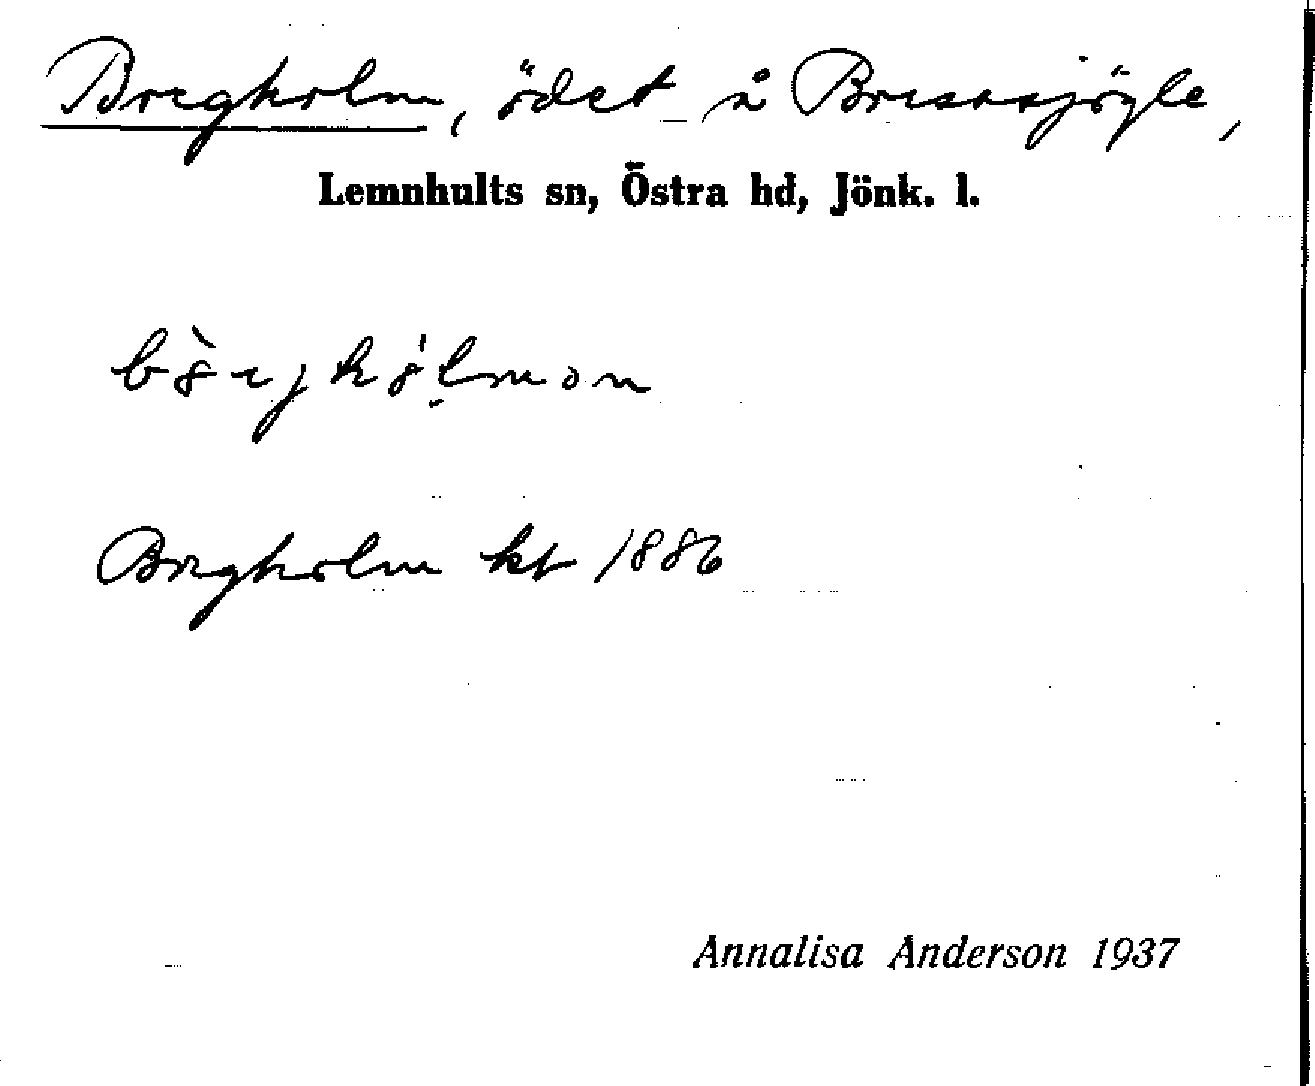 Borgholm, ödet å
Lemnhults sn, Östra hd, Jönk. l.
Borgholm kt 1886
Annalisa Anderson 1937